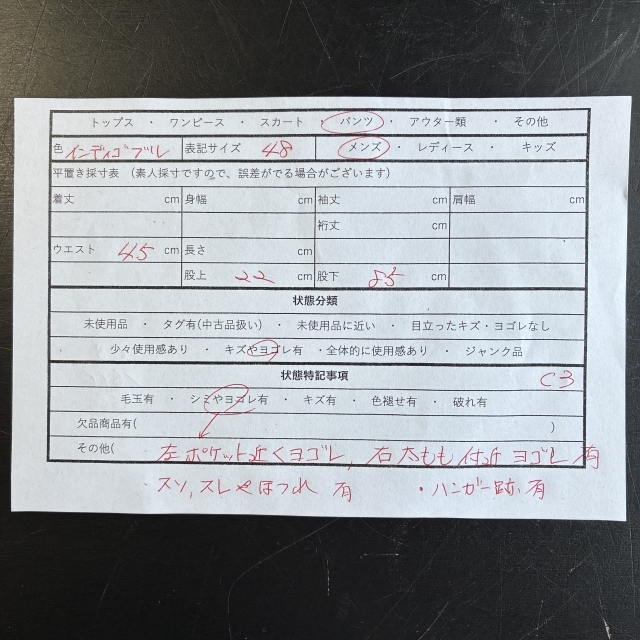 トップス ・ ワンピース ・ スカート ・ パンツ ・ アウター類 ・ その他
色 インディゴブル 表記サイズ 48 メンズ ・ レディース ・ キッズ
平置き採寸表 (素人採寸ですので、誤差がでる場合がございます)
着丈 cm 身幅 cm 袖丈 cm 肩幅 cm
裄丈 cm
ウエスト 45 cm 長さ cm
股上 22 cm 股下 85 cm
状態分類
未使用品 ・ タグ有(中古品扱い) ・ 未使用品に近い ・ 目立ったキズ・ヨゴレなし
少々使用感あり ・ キズやヨゴレ有 ・全体的に使用感あり ・ ジャンク品
状態特記事項 C3
毛玉有 ・ シミやヨゴレ有 ・ キズ有 ・ 色褪せ有 ・ 破れ有
欠品商品有( )
その他( 左ポケット近くヨゴレ, 右太もも付近ヨゴレ有 )
・スソ,スレやほつれ 有 ・ハンガー跡,有